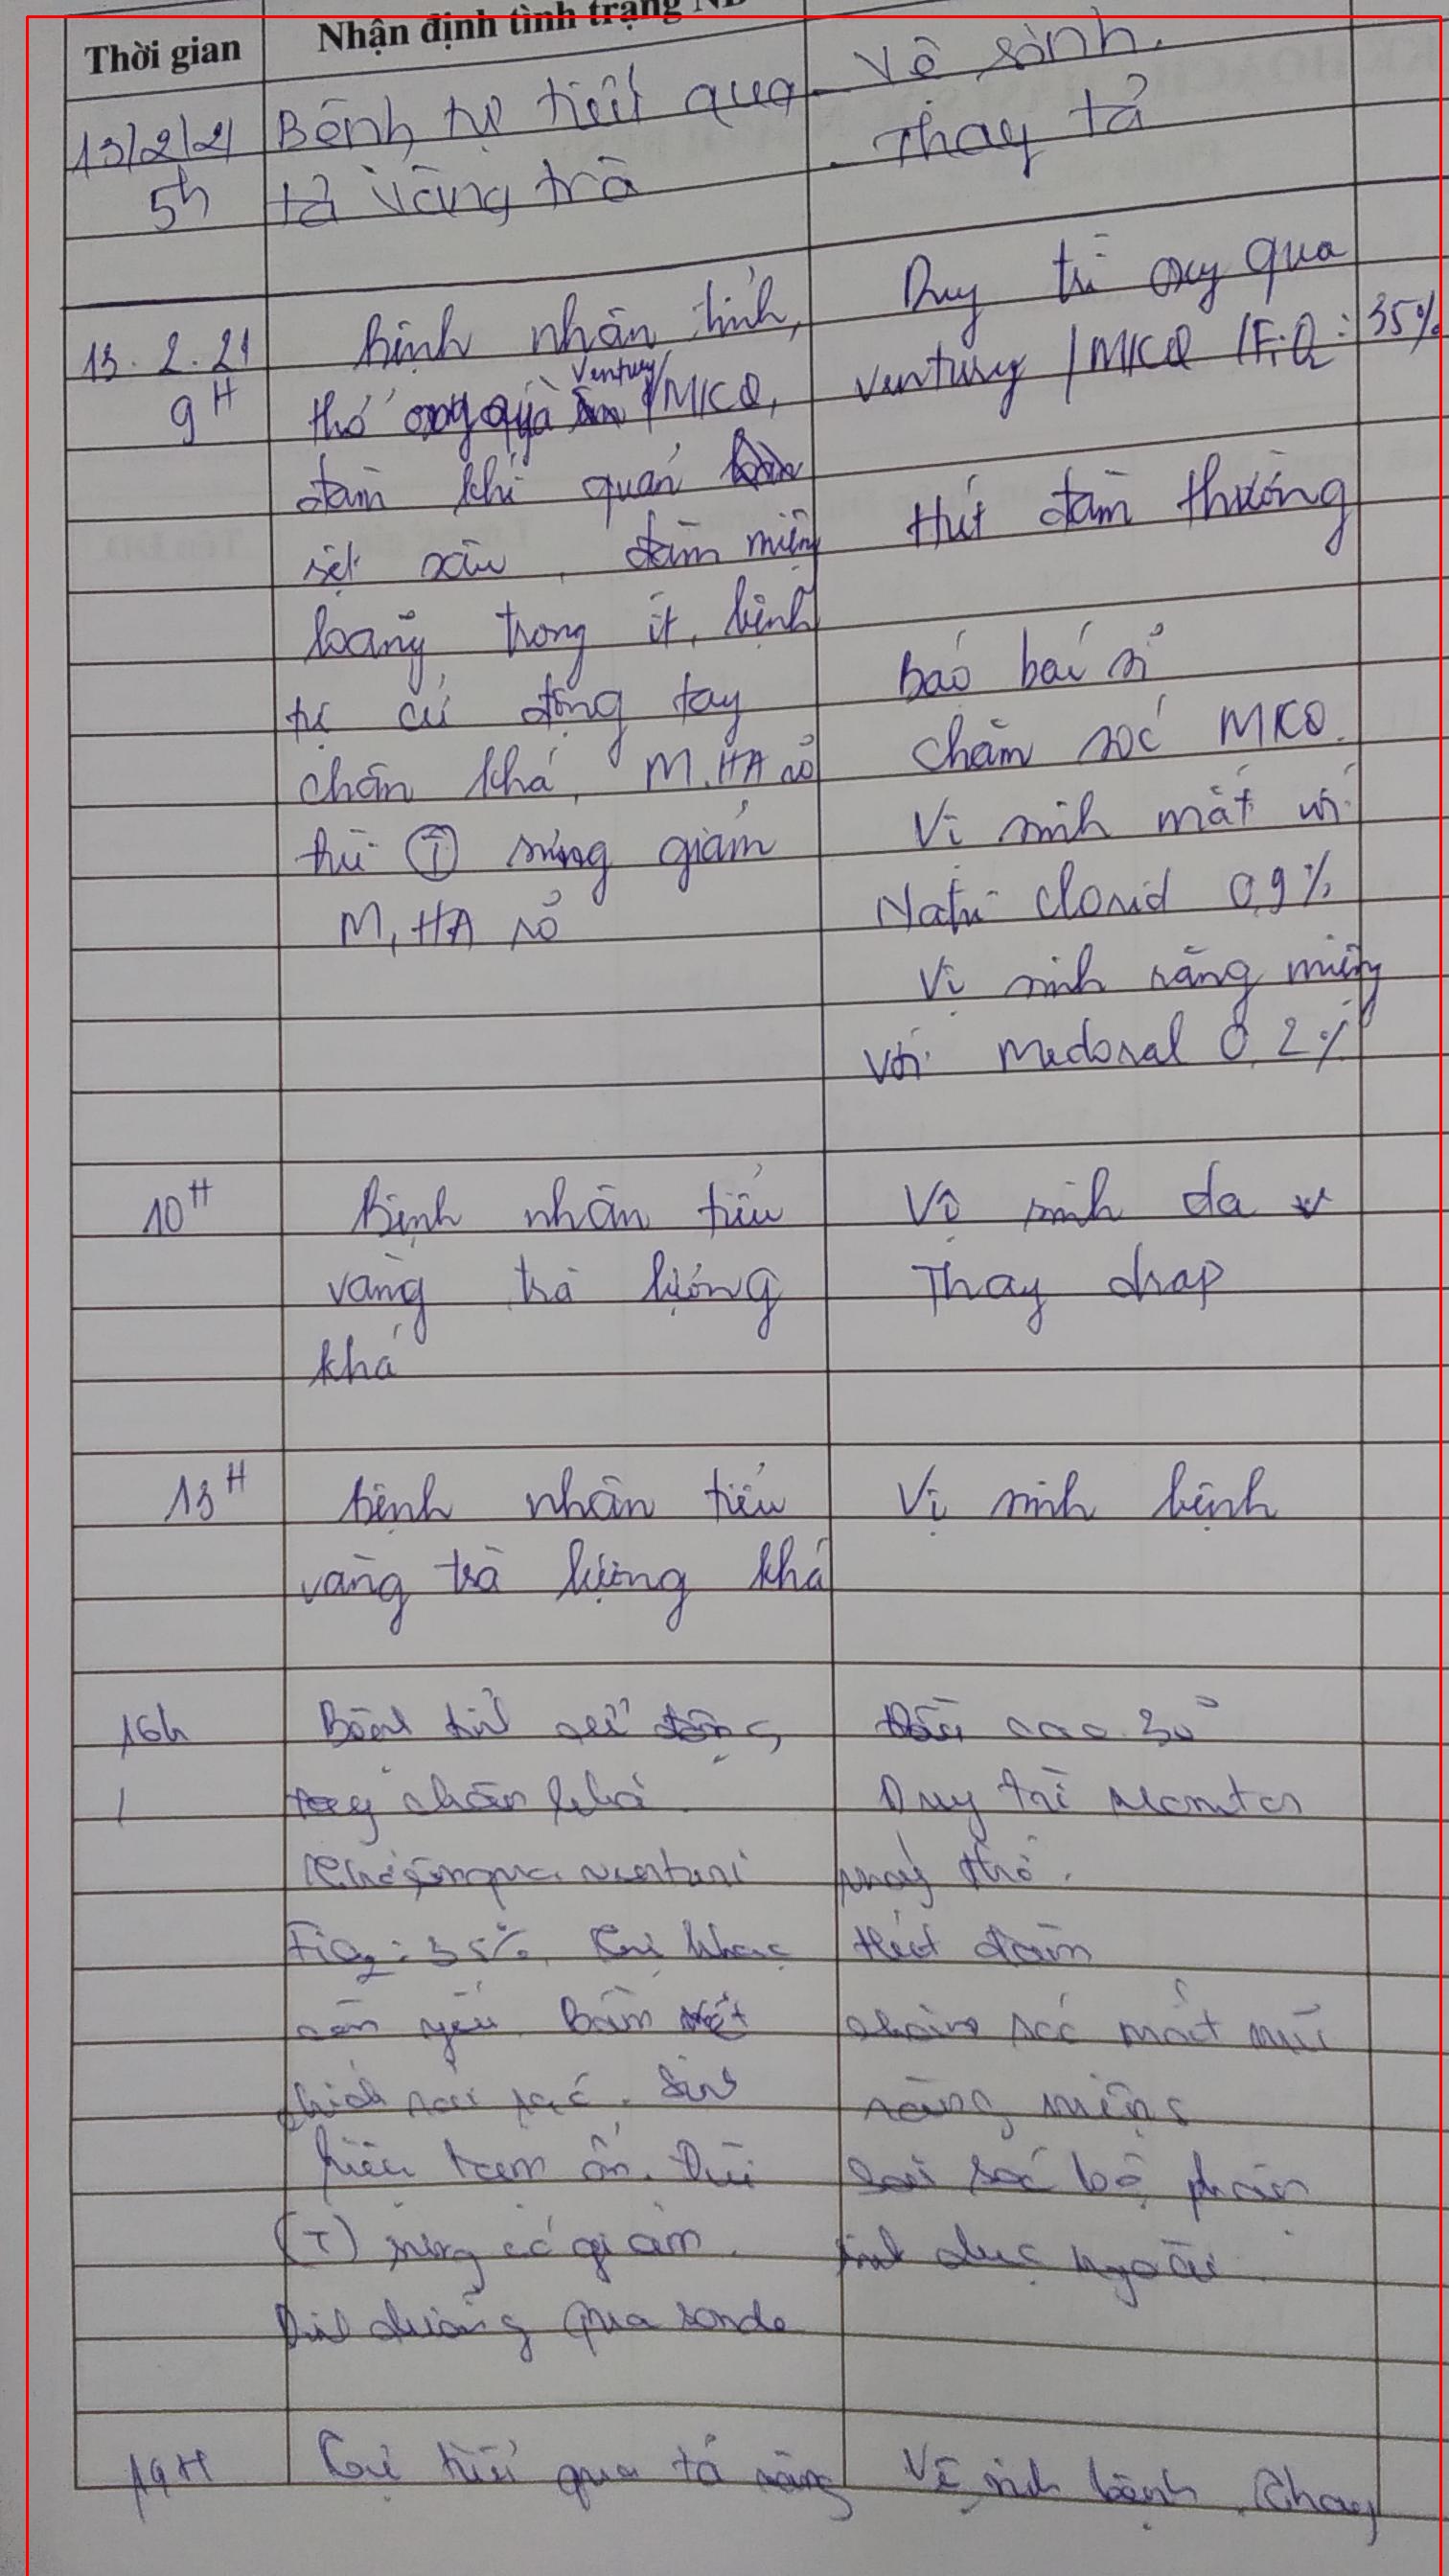 Thời gian
Nhận định tình trạng NB
13/2/21
5h
Bệnh tự tiểu qua
tả vàng trà
- Vệ sinh.
- Thay tả
13.2.21
9H
Bệnh nhân tỉnh,
thở oxy qua ventury/MKQ,
đàm khí quản
sệt xấu, đàm miệng
loãng trong ít, bệnh
tự cử động tay
chân khá, M, HA rõ
thì (T) sưng giảm
M, HA rõ
Duy trì oxy qua
ventury /MKQ (FiO2: 35%
Hút đàm thường
báo bác sĩ
chăm sóc MKQ.
Vệ sinh mắt với
Natri clorid 0,9%
Vệ sinh răng miệng
với medoral 0,2%
10H
Bệnh nhân tiểu
vàng trà lượng
khá
Vệ sinh da
Thay drap
13H
Bệnh nhân tiểu
vàng trà lượng khá
Vệ sinh bệnh
16h
Bệnh tỉnh cử động
tay chân khá.
qua venturi
FiO2: 35%. khạc
còn yếu.
Sinh
hiệu tạm ổn.
(T) sưng có giảm.
Dinh dưỡng qua sonde
Đầu cao 30°
Duy trì Monitor
máy thở.
Hút đàm
chăm sóc mắt mũi
răng miệng
sóc bộ phận
sinh dục ngoài.
19H
tiểu qua tả vàng
Vệ sinh bệnh. Thay